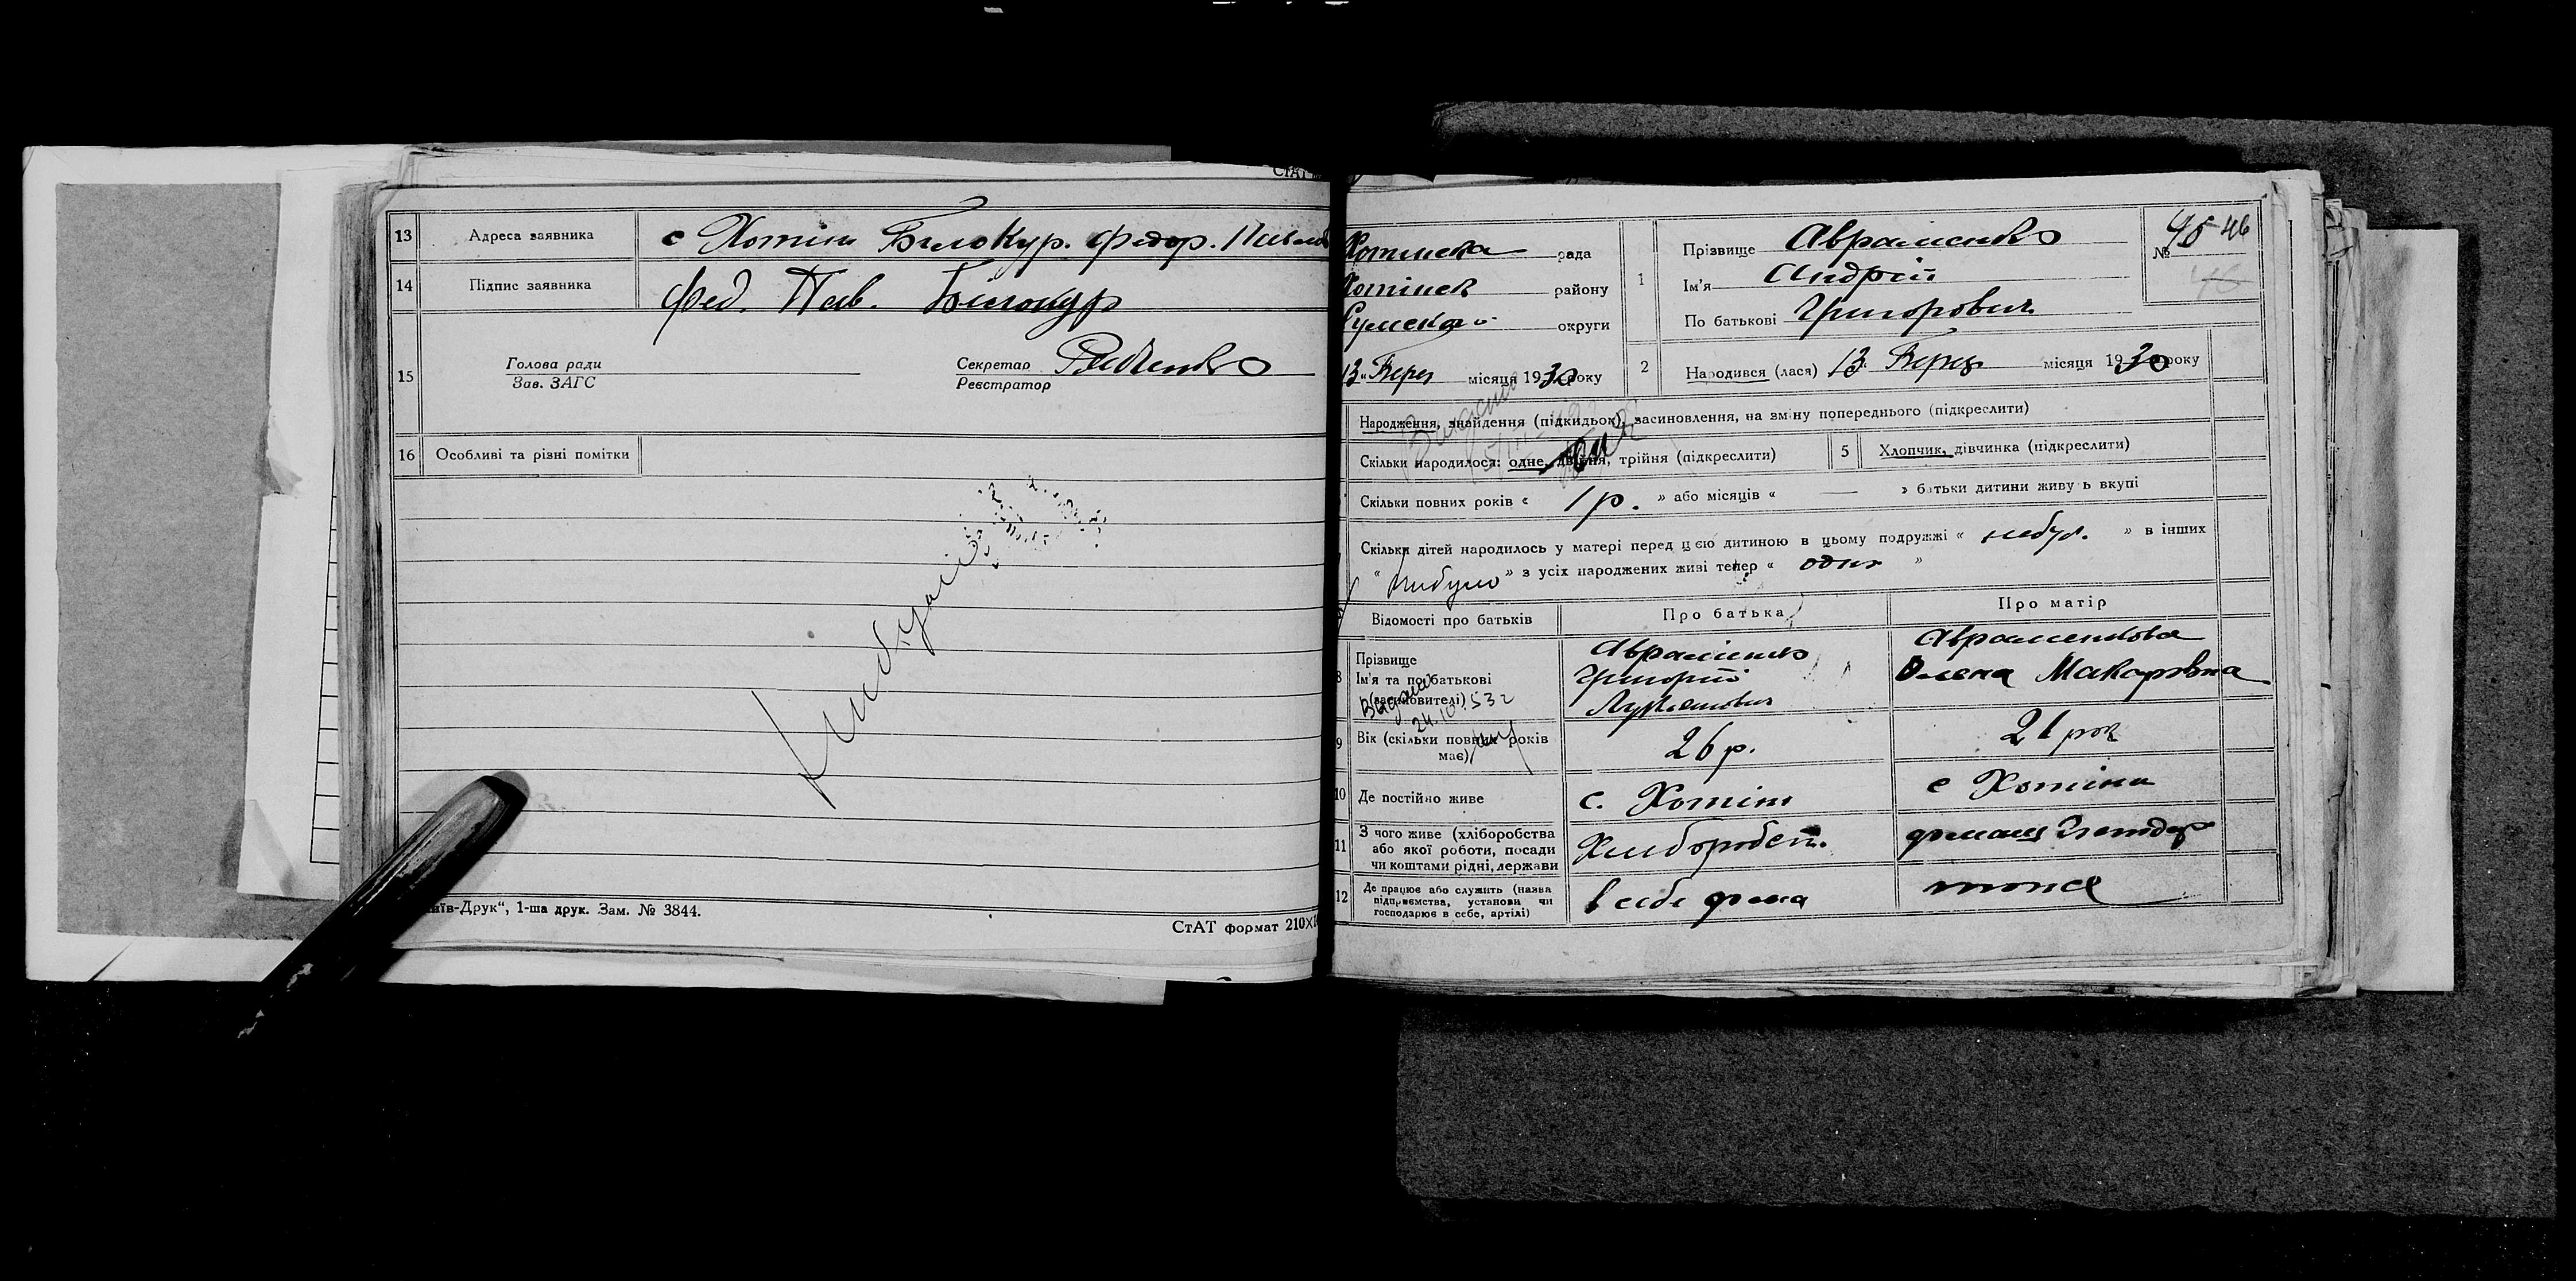 СтАТ
13 Адреса заявника с Хотінь Білокур. Федор.
14 Підпис заявника Фед. Пав. Білокур
15 Голова ради Секретар
Зав. ЗАГС Реєстратор
16 Особливі та різні помітки
Київ-Друк“, 1-ша друк. Зам. № 3844.
СтАТ формат 210×
Хотінська рада
Хотінськ району
Сумської округи
13 Берез місяця 1930 року
1 Прізвище Авраменко
Ім'я Андрій
По батькові Григорович
№ 45 46
46
2 Народився (лася) 13 Берез місяця 1930 року
Народження, знайдення (підкидьок), засиновлення, на зміну попереднього (підкреслити)
Скільки народилося: одне, двійня, трійня (підкреслити) 5 Хлопчик, дівчинка (підкреслити)
Скільки повних років « 1 р. » або місяців « — » батьки дитини живуть вкупі
Скільки дітей народилось у матері перед цією дитиною в цьому подружжі « небул. » в інших
« небуло » з усіх народжених живі тепер « один »
Відомості про батьків Про батька Про матір
8 Прізвище Авраменко Авраменкова
Ім'я та по батькові Григорій Олена Макаровна
(засиновителі)
Видано
24.10.53г
9 Вік (скільки повних років має) 26 р. 21 рок
10 Де постійно живе с. Хотінь с Хотіни
11 З чого живе (хліборобства
або якої роботи, посади
чи коштами рідні, держави Хліборобст.
12 Де працює або служить (назва
підприємства, установи чи
господарює в себе, артілі) в себе дома